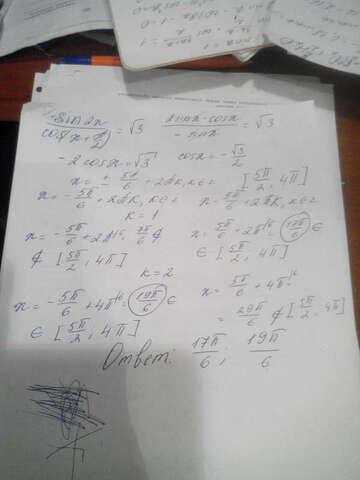 sin 2x / cos(x + π/2) = √3    2sinx·cosx / -sinx = √3
-2cosx = √3    cosx = -√3/2
x = ± 5π/6 + 2πk, k∈z    [5π/2, 4π]
x = -5π/6 + 2πk, k∈z    x = 5π/6 + 2πk, k∈z
k = 1
x = -5π/6 + 2π = 7π/6 ∉    x = 5π/6 + 2π = 17π/6
∉ [5π/2, 4π]    ∈ [5π/2, 4π]
k = 2
x = -5π/6 + 4π = 19π/6 ∈    x = 5π/6 + 4π =
∈ [5π/2, 4π]    = 29π/6 ∉ [5π/2, 4π]
Ответ: 17π/6; 19π/6